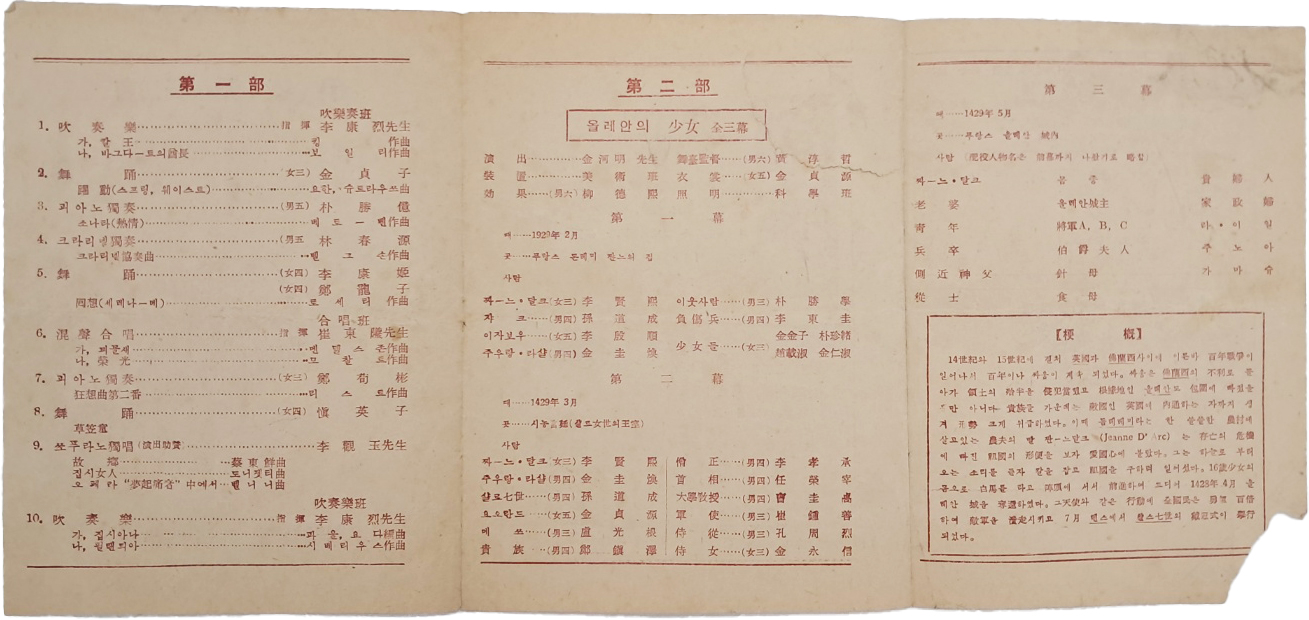 第一部
吹奏樂班
1. 吹奏樂 指揮 李康烈先生
가, 칼王 킹 作曲
나, 바그다ー트의酋長 보일러作曲
2. 舞踊 (女三) 金貞子
躍動(스프링, 웨이스트) 요한, 슈트라우쓰曲
3. 피아노獨奏 (男五) 朴勝億
소나타(熱情) 베토ー벤作曲
4. 크라리넽獨奏 (男五 林春源
크라리넽協奏曲 作曲
5. 舞踊 (女四) 李康姬
(女四) 鄭龍子
悶想(세레나ー데) 로세티 作曲
合唱班
6. 混聲合唱 指揮 崔東隆先生
가, 꾀꼴새 멘델스존作曲
나, 榮光 모찰트作曲
7. 피아노獨奏 (女三) 鄭荀彬
狂想曲第二番 리스트作曲
8. 舞踊 (女四) 愼英子
草笠童
9. 쏘푸라노獨唱(演出助贊) 李觀玉先生
故鄕 蔡東鮮曲
집시女人 도니젯티曲
오페라 “夢起痛者" 中에서 벨니니曲
吹奏樂班
10. 吹奏樂 指揮 李康烈先生
가, 집시아나 파울, 요다編曲
나, 휜랜듸아 시베리우스作曲
第二部
올레안의 少女 全三幕
演出 金河明 先生 舞臺監督 (男六) 黃淳哲
裝置 美術班 衣裳 (女五) 金貞源
効果 (男六) 柳德熙 照明 科學班
第一幕
때 1929年 2月
곳 푸랑스 돈레미 짠느의 집
사람
짜ー느・달크 (女三) 李賢熙 이웃사람 (男三) 朴勝學
쟈크 (男四) 孫道成 負傷兵 (男四) 李東圭
이자보우 (女五) 李殷順 少女들 (女三) 金金子 朴珍緖
쥬우랑・라샬 (男四) 金圭煥 趙載淑 金仁淑
第二幕
때 1429年 3月
곳 시농宮殿(샬르七世의王宮)
사람
짜ー느・달크 女三) 李賢熙 僧正 (男四) 李孝承
쥬우랑・라샬 (男四) 金圭煥 首相 (男四) 任榮宰
샬르七世 (男四) 孫道成 大學敎授 (男四) 曺圭高
요오란드 (女五) 金貞源 軍使 (男三) 崔鍾善
메쓰 (男三) 盧光根 侍從 (男三) 孔周烈
貴族 (男四) 鄭鎭澤 侍女 (女三) 金永信
第三幕
때 1429年 5月
곳 푸랑스 올레안 城內
사람 (配役人物名은 前幕까지 나왔기로 略함)
짜ー느・달크 몸종 貴婦人
老婆 올레안城主 家政婦
靑年 將軍A, B, C 라・이일
兵卒 伯爵夫人 쥬노아
側近神父 針母 가마슈
從士 食母
【梗槪】
14世紀와 15世紀에 걸쳐 英國과 佛蘭西사이에 이른바 百年戰爭이
일어나서 百年이나 싸움이 계속 되었다。싸움은 佛蘭西의 不利로 돌
아가 領土의 踏半을 侵犯當했고 根據地인 올레안도 包圍에 빠졌을
뿐만 아니라 貴族들 가운데는 敵國인 英國에 內通하는 자까지 생
겨 크게 위급하였다。이때 돌레메이라는 한 쓸쓸한 農村에
살고있는 農夫의 딸 짠ー느달크(Jeanne D' Arc) 는 存亡의 危機
에 빠진 祖國의 形便을 보자 愛國心에 불탔다。그는 하늘로 부터
오는 소리를 듣자 칼을 잡고 祖國을 구하려 일어섰다。16歲少女의
몸으로 白馬를 타고 陣頭에 서서 前進하여 드디어 1428年 4月 올
레안 城을 奪還하였다。그天使와 같은 行動에 全國民은 勇氣 百倍
하여 敵軍을 擊走시키고 7月 랜스에서 샬스七世의 戴冠式이 擧行
되었다。